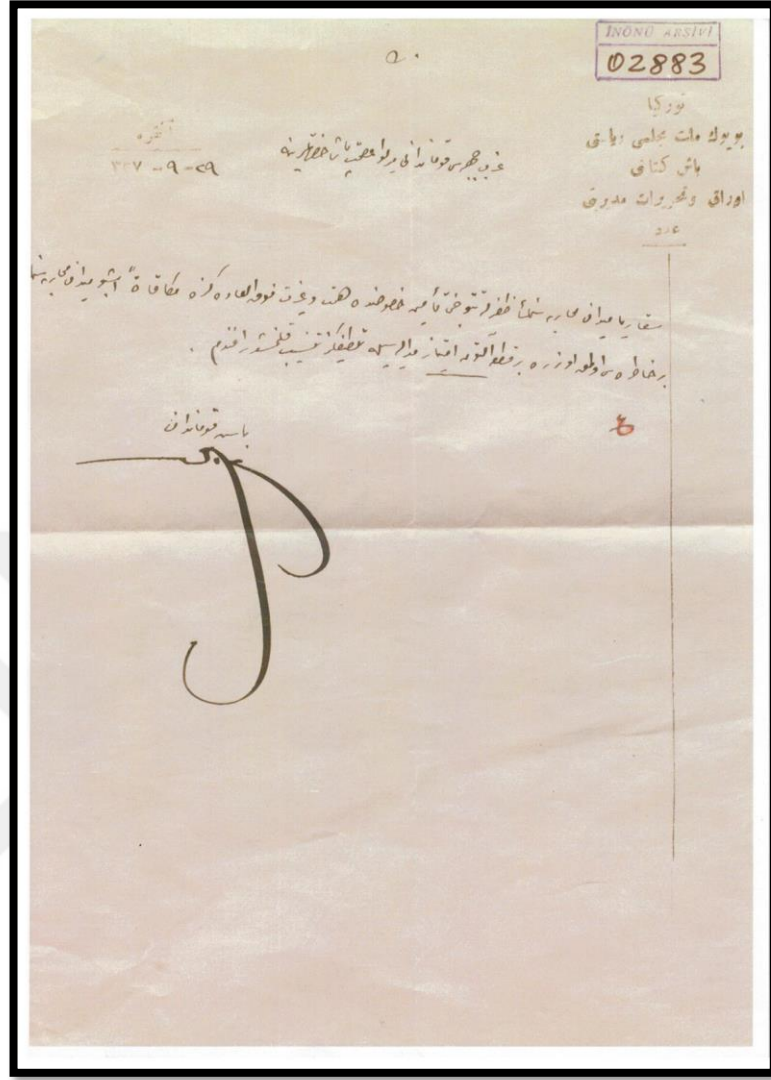 İNÖNÜ ARŞİVİ
02883
توركيا
بويوك ملت مجلسى رياستى
باش كتابتى
اوراق وتحريرات مديريتى
عدد
آنقره
٣٣٧-٩-٢٩
غرب جبهه سى قوماندانى ميرلوا عصمت پاشا حضرتلرينه
سقاريا ميدان محاربه سنك ظفرله تتويجنى تأمين خصوصنده همت و غيرت فوق العاده كزه مكافاةً اشبو ميدان محاربه سنك
بر خاطره سى اولمق اوزره بر قطعه آلتون امتياز مداليه سيله تلطيفكز تنسيب قلنمشدر افندم .
باش قوماندان